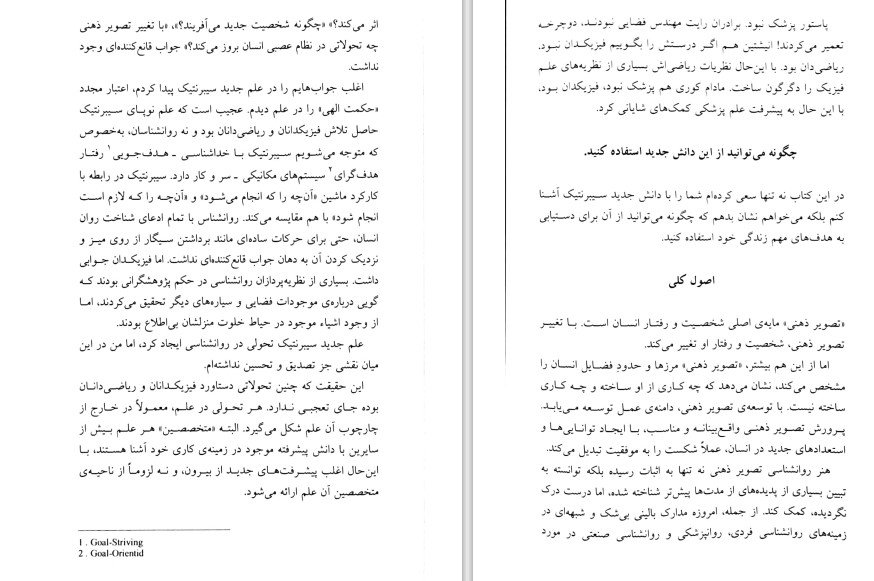 اثر می‌کند؟» «چگونه شخصیت جدید می‌آفریند؟»، «با تغییر تصویر ذهنی
چه تحولاتی در نظام عصبی انسان بروز می‌کند؟» جواب قانع‌کننده‌ای وجود
نداشت.
اغلب جواب‌هایم را در علم جدید سیبرنتیک پیدا کردم، اعتبار مجدد
«حکمت الهی» را در علم دیدم. عجیب است که علم نوپای سیبرنتیک
حاصل تلاش فیزیکدانان و ریاضی‌دانان بود و نه روانشناسان، به‌خصوص
که متوجه می‌شویم سیبرنتیک بـا خداشناسی ـ هـدف‌جویی۱ رفتـار
هدف‌گرای۲ سیستم‌های مکانیکی ـ سر و کار دارد. سیبرنتیک در رابطه با
کارکرد ماشین «آن‌چه را که انجام می‌شود» و «آن‌چـه را کـه لازم اسـت
انجام شود» با هم مقایسه می‌کند. روانشناس با تمام ادعای شناخت روان
انسان، حتی برای حرکات ساده‌ای مانند برداشتن سیگار از روی میـز و
نزدیک کردن آن به دهان جواب قانع‌کننده‌ای نداشت. اما فیزیکدان جـوابی
داشت. بسیاری از نظریه‌پردازان روانشناسی در حکم پژوهشگرانی بودند کـه
گویی درباره‌ی موجودات فضایی و سیاره‌های دیگر تحقیق می‌کردند، امـا
از وجود اشیاء موجود در حیاط خلوت منزلشان بی‌اطلاع بودند.
علم جدید سیبرنتیک تحولی در روانشناسی ایجاد کرد، اما من در این
میان نقشی جز تصدیق و تحسین نداشته‌ام.
این حقیقت که چنین تحولاتی دستاورد فیزیکدانان و ریاضی‌دانـان
بوده جـای تعجبـی نـدارد. هـر تحـولی در علـم، معمـولاً در خـارج از
چارچوب آن علم شکل می‌گیرد. البتـه «متخصصـین» هـر علـم بـیش از
سایرین با دانش پیشرفته موجود در زمینه‌ی کاری خود آشنا هسـتند، بـا
این‌حال اغلب پیشرفت‌های جدیـد از بیـرون، و نـه لزومـاً از ناحیـه‌ی
متخصصین آن علم ارائه می‌شود.
1 . Goal-Striving
2 . Goal-Orientid
پاستور پزشک نبود. برادران رایت مهندس فضایی نبودنـد، دوچرخـه
تعمیر می‌کردند! انیشتین هـم اگـر درسـتش را بگـوییم فیزیکـدان نبـود.
ریاضی‌دان بود. با این‌حال نظریات ریاضی‌اش بسیاری از نظریه‌های علـم
فیزیک را دگرگون ساخت. مادام کوری هم پزشک نبود، فیزیکدان بـود،
با این حال به پیشرفت علم پزشکی کمک‌های شایانی کرد.
چگونه می‌توانید از این دانش جدید استفاده کنید.
در این کتاب نه تنها سعی کرده‌ام شما را با دانش جدید سیبرنتیک آشـنا
کنم بلکه می‌خواهم نشان بدهم که چگونه می‌توانید از آن برای دستیابی
به هدف‌های مهم زندگی خود استفاده کنید.
اصول کلی
«تصویر ذهنی» مایه‌ی اصلی شخصیت و رفتـار انسـان اسـت. بـا تغییـر
تصویر ذهنی، شخصیت و رفتار او تغییر می‌کند.
اما از این هم بیشتر، «تصویر ذهنی» مرزها و حدودِ فضـایل انسـان را
مشخص می‌کند، نشان می‌دهد که چه کاری از او ساخته و چـه کـاری
ساخته نیست. با توسعه‌ی تصویر ذهنی، دامنه‌ی عمـل توسـعه مـی‌یابـد.
پـرورش تصـویر ذهنـی واقع‌بینانـه و مناسـب، بـا ایجـاد توانـایی‌هـا و
استعدادهای جدید در انسان، عملاً شکست را به موفقیت تبدیل می‌کند.
هنر روانشناسی تصویر ذهنی نه تنها به اثبات رسیده بلکه توانسته به
تبیین بسیاری از پدیده‌های از مدت‌ها پیش‌تر شناخته شده، اما درست درک
نگردیده، کمک کند. از جمله، امروزه مدارک بالینی بی‌شک و شبهه‌ای در
زمینه‌های روانشناسی فردی، روانپزشکی و روانشناسی صنعتی در مورد